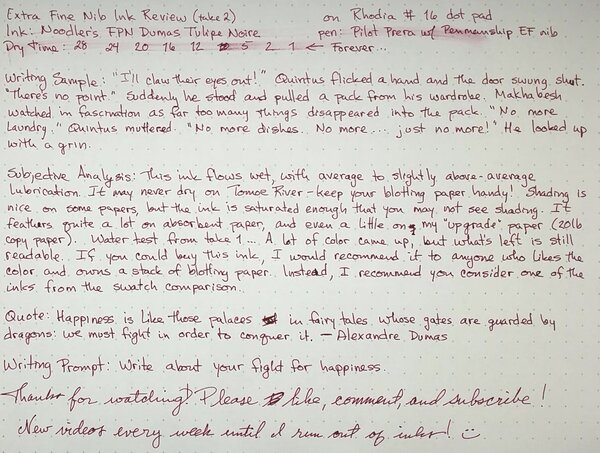 Extra Fine Nib Ink Review (take 2) on Rhodia #16 dot pad
Ink: Noodler's FPN Dumas Tulipe Noire pen: Pilot Prera w/ Penmanship EF nib
Dry Time: 28 24 20 16 12 5 2 1 ← Forever...
Writing Sample: "I'll claw their eyes out!" Quintus flicked a hand and the door swung shut.
"There's no point." Suddenly he stood and pulled a pack from his wardrobe. Makhabesh
watched in fascination as far too many things disappeared into the pack. "No more
laundry." Quintus muttered. "No more dishes. No more.... just no more!" He looked up
with a grin.
Subjective Analysis: This ink flows wet, with average to slightly above-average
lubrication. It may never dry on Tomoe River - keep your blotting paper handy! Shading is
nice on some papers, but the ink is saturated enough that you may not see shading. It
feathers quite a lot on absorbent paper, and even a little on my "upgrade" paper (20lb
copy paper). Water test from take 1... A lot of color came up, but what's left is still
readable. If you could buy this ink, I would recommend it to anyone who likes the
color and owns a stack of blotting paper. Instead, I recommend you consider one of the
inks from the swatch comparison.
Quote: Happiness is like those palaces in fairy tales whose gates are guarded by
dragons: we must fight in order to conquer it. — Alexandre Dumas
Writing Prompt: Write about your fight for happiness.
Thanks for watching! Please like, comment, and subscribe!
New videos every week until I run out of inks! :)